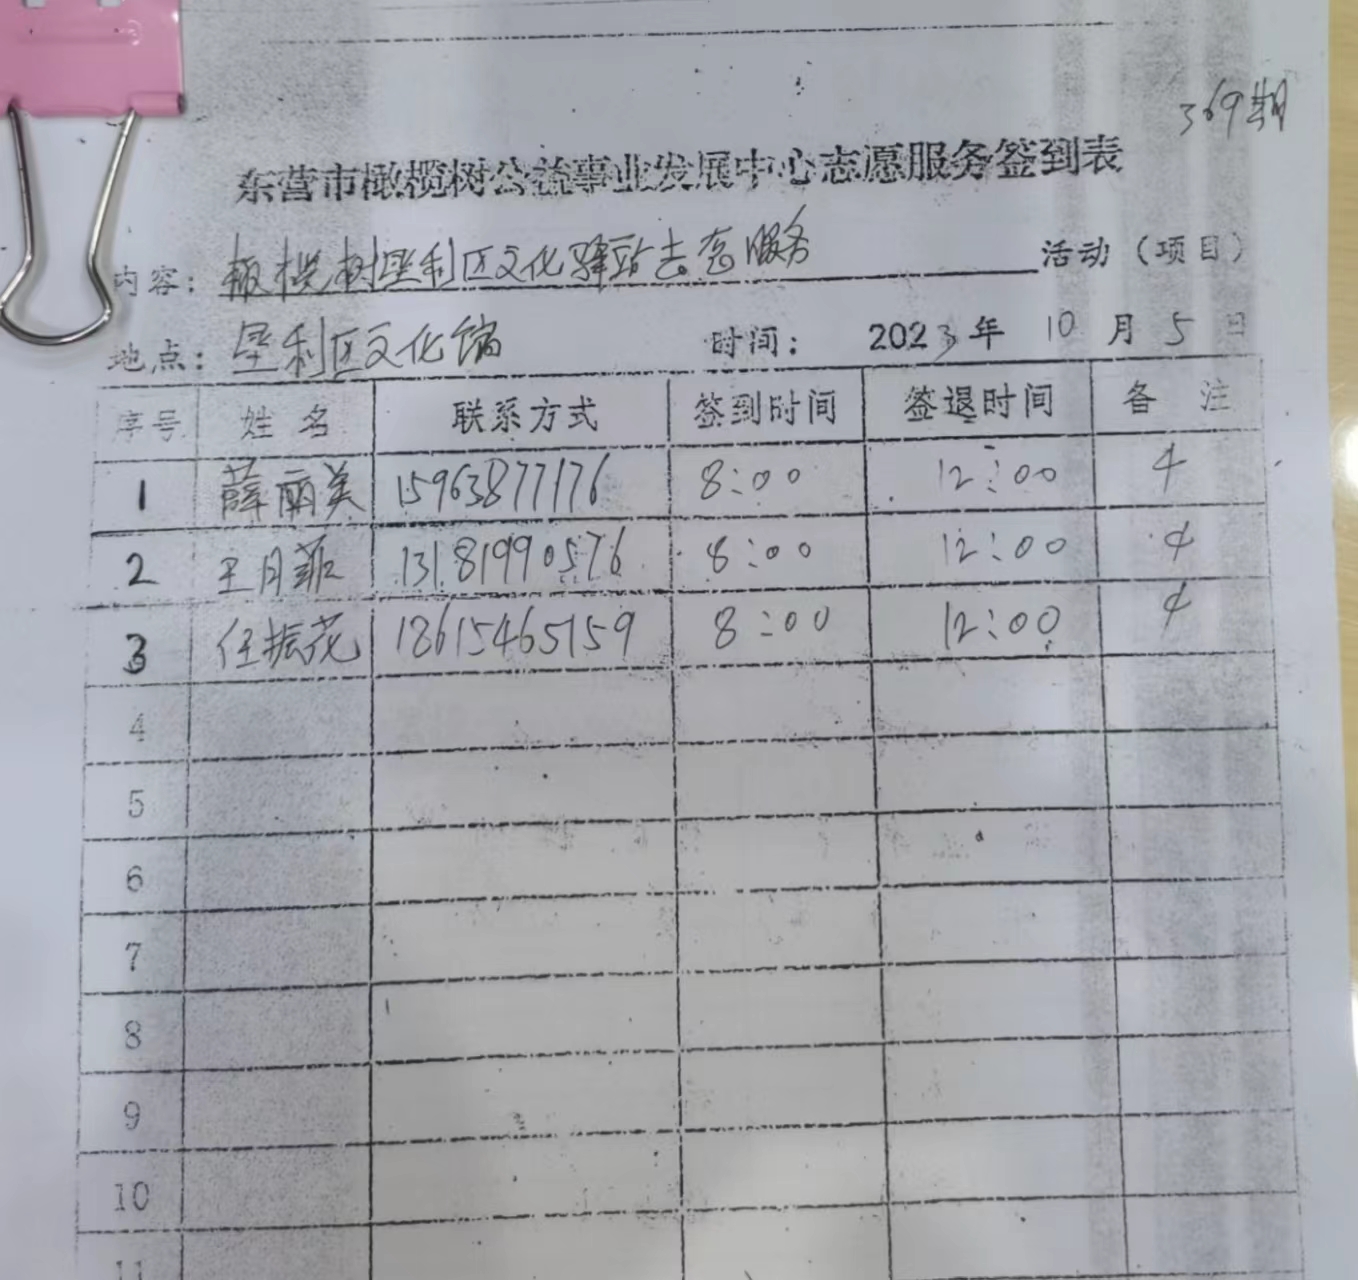 369期
东营市橄榄树公益事业发展中心志愿服务签到表
内容：橄榄树垦利区文化驿站志愿服务 活动（项目）
地点：垦利区文化馆 时间： 2023年 10 月 5 日
序号 姓名 联系方式 签到时间 签退时间 备注
1 薛丽美 15963877176 8:00 12:00 4
2 王月菲 13181990576 8:00 12:00 4
3 任振花 18615465159 8:00 12:00 4
4
5
6
7
8
9
10
11